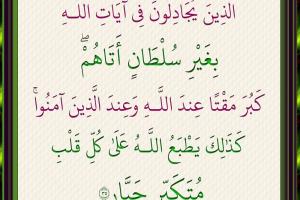 الَّذِينَ يُجَادِلُونَ فِي آيَاتِ اللَّـهِ
بِغَيْرِ سُلْطَانٍ أَتَاهُمْ ۖ
كَبُرَ مَقْتًا عِندَ اللَّـهِ وَعِندَ الَّذِينَ آمَنُوا ۚ
كَذَٰلِكَ يَطْبَعُ اللَّـهُ عَلَىٰ كُلِّ قَلْبِ
مُتَكَبِّرٍ جَبَّارٍ ﴿٣٥﴾